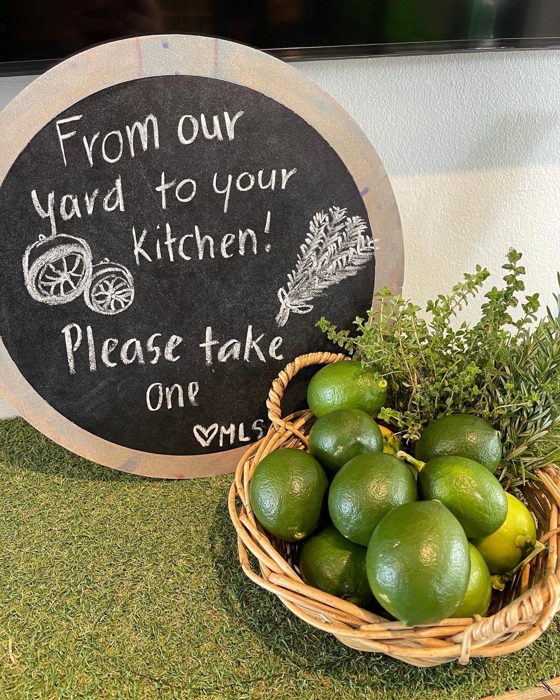 From our
yard to your
kitchen!
Please take
one
♡MLS